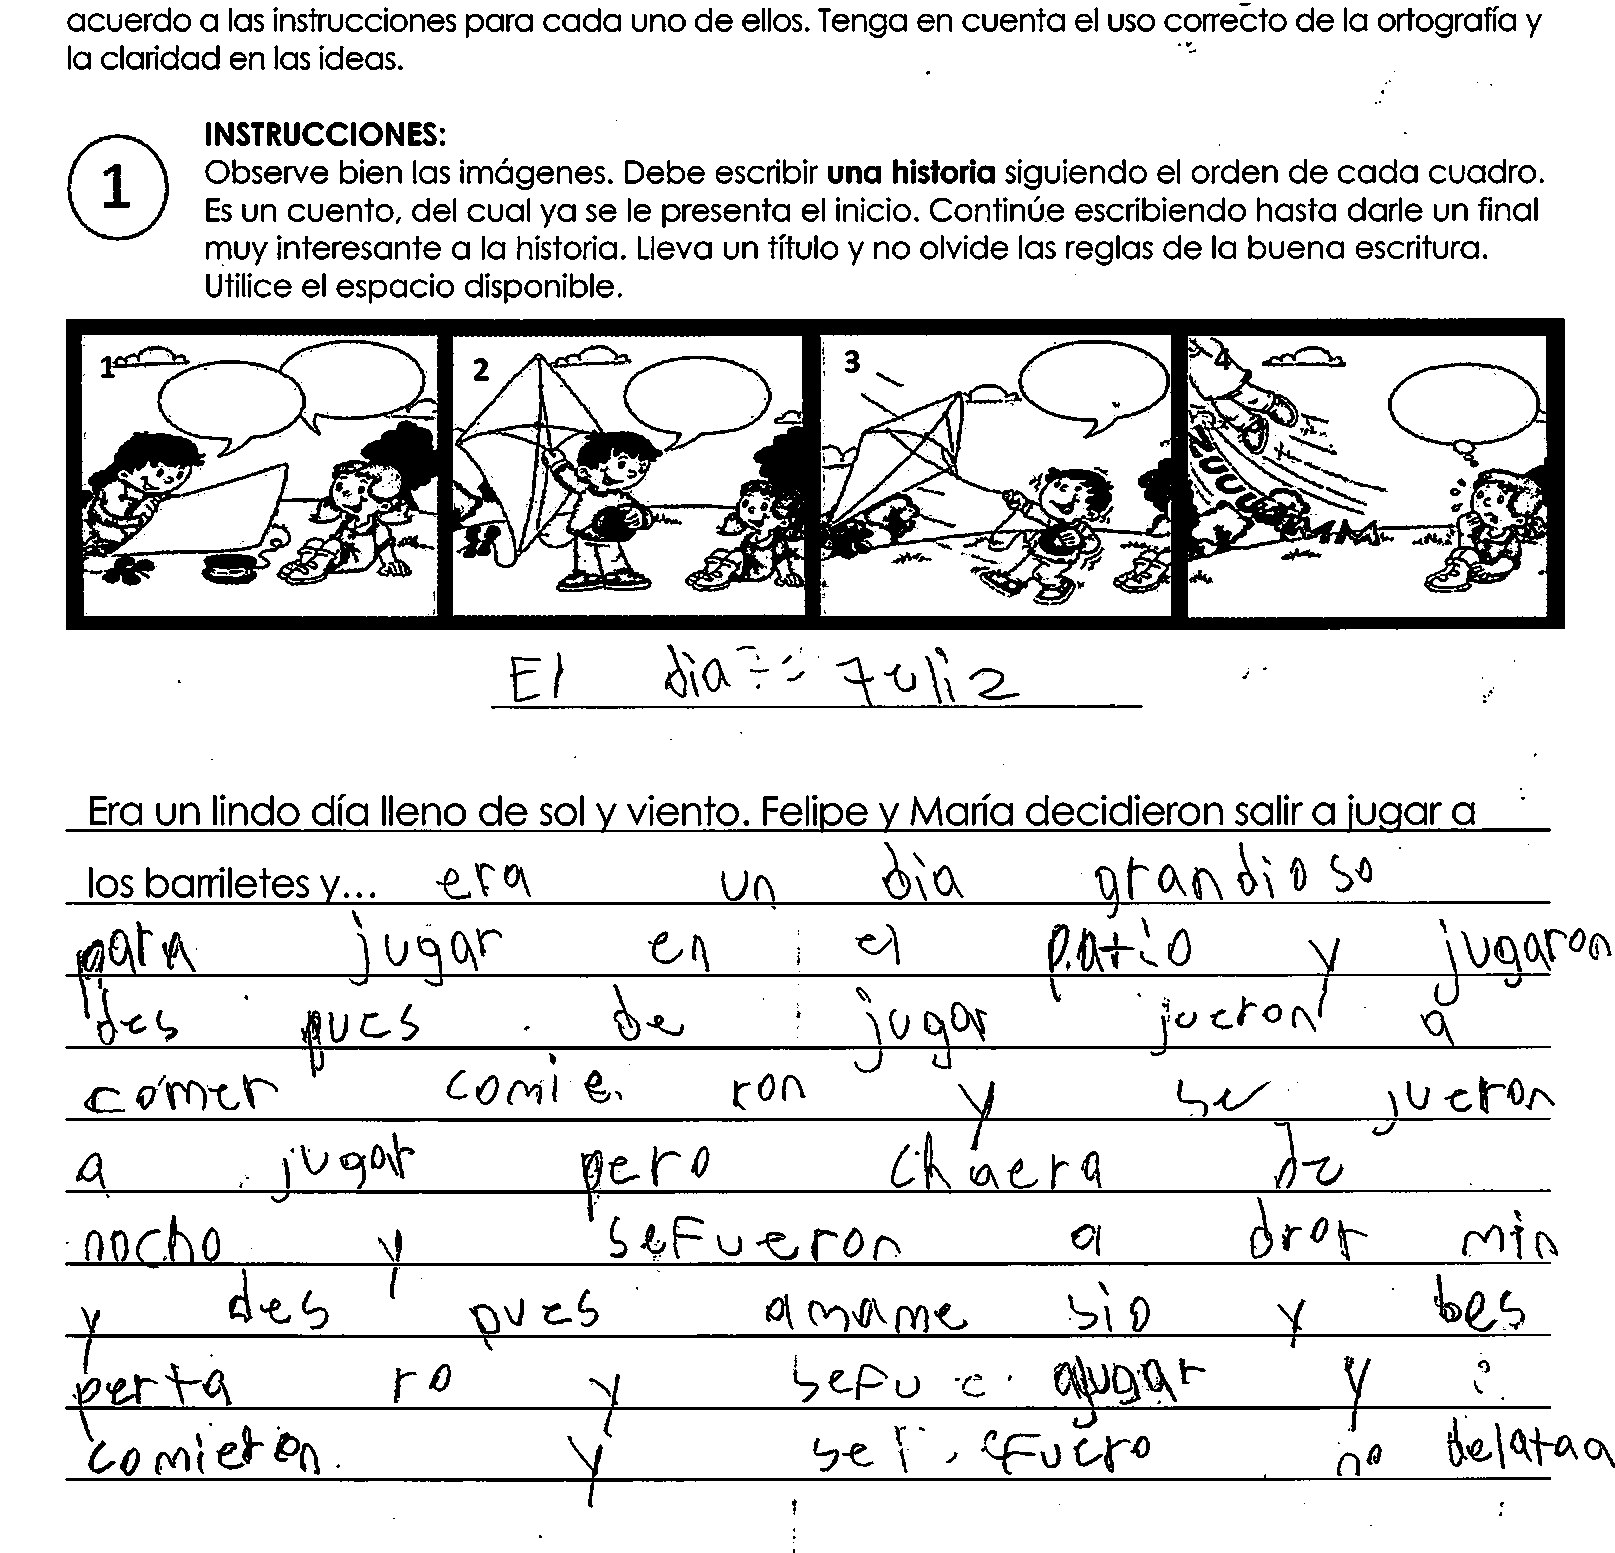 acuerdo a las instrucciones para cada uno de ellos. Tenga en cuenta el uso correcto de la ortografía y
la claridad en las ideas.
1
INSTRUCCIONES:
Observe bien las imágenes. Debe escribir una historia siguiendo el orden de cada cuadro.
Es un cuento, del cual ya se le presenta el inicio. Continúe escribiendo hasta darle un final
muy interesante a la historia. Lleva un título y no olvide las reglas de la buena escritura.
Utilice el espacio disponible.
1 2 3 4
El dia Feliz
Era un lindo día lleno de sol y viento. Felipe y María decidieron salir a jugar a
los barriletes y... era un dia grandioso
para jugar en el patio y jugaron
des pues de jugar jueron a
comer comie ron y se jueron
a jugar pero era de
nocho y seFueron a dror min
y des pues amame sio y bes
perta ro y sefue ajugar y
comieron y no delataa